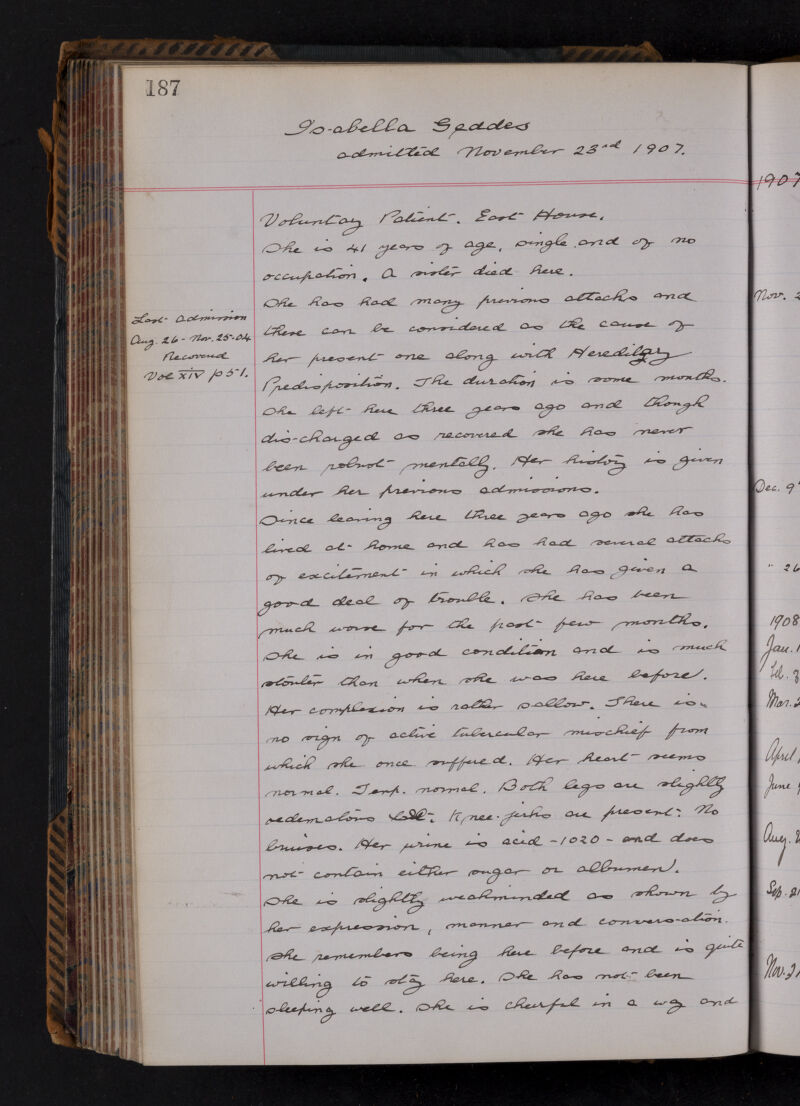 187
Isabella Geddes
admitted November 23rd 1907.
Voluntary Patient. East House.
She is 41 years of age, single and of no
occupation. A sister died here.
She has had many previous attacks and
these can be considered as the cause of
her present one along with Hereditary
Predisposition. The duration is some months.
She left here three years ago and though
discharged as recovered she has never
been robust mentally. Her history is given
under her previous admissions.
Since leaving here three years ago she has
lived at home and has had several attacks
of excitement in which she has given a
good deal of trouble. She has been
much worse for the past few months.
She is in good condition and is much
stouter than when she was here before.
Her complexion is rather sallow. There is
no sign of active tubercular mischief from
which she once suffered. Her heart seems
normal. Temp. normal. Both legs are slightly
oedematous. Knee-jerks are present. No
bruises. Her urine is acid - 1020 - and does
not contain either sugar or albumen.
She is slightly weakminded as shown by
her expression, manner and conversation.
She remembers being here before and is quite
willing to stay here. She has not been
sleeping well. She is cheerful in a way and
Last admission
Aug. 26 - Nov. 25-04
Recovered
Vol XIV p51.
1907
Nov. 2
Dec. 9
" 26
1908
Jan. 1
Feb. 3
Mar. 2
April
June
Aug. 2
Sep. 21
Nov. 21